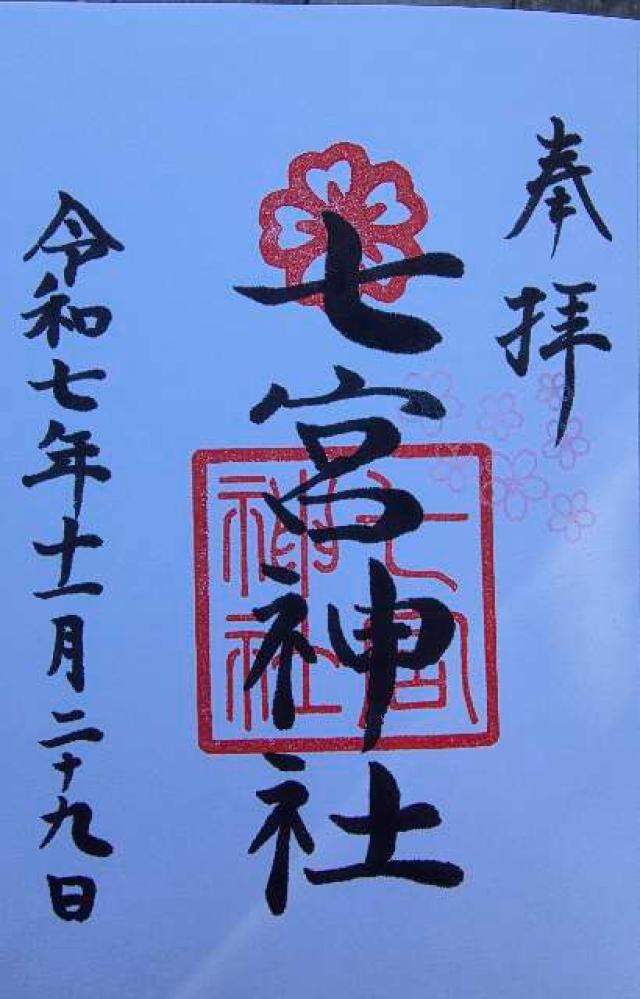 奉拝
七宮神社
七宮
神社
令和七年十一月二十九日